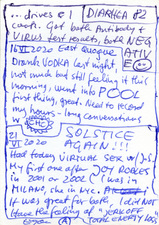 ... drives @ 1 DIARHCA 82
covet. Got both Antibody +
VIRUS test results, both NEG
16 VI 2020 East Quogue, ATIV
Drank VODKA last night, E
not much but still feeling it this
morning, went into POOL
first thing, great. Need to record
my hours - long conversations
21 VI 2020 SOLSTICE
AGAIN!!!
Had today virtual sex w/
My first one after JOY ROBLES
in 2001 or 2002 (I was in
MILANO, she in NYC.
It was great for both, I did NOT
have the feeling of a JERK OFF
total ENERGY LOSS